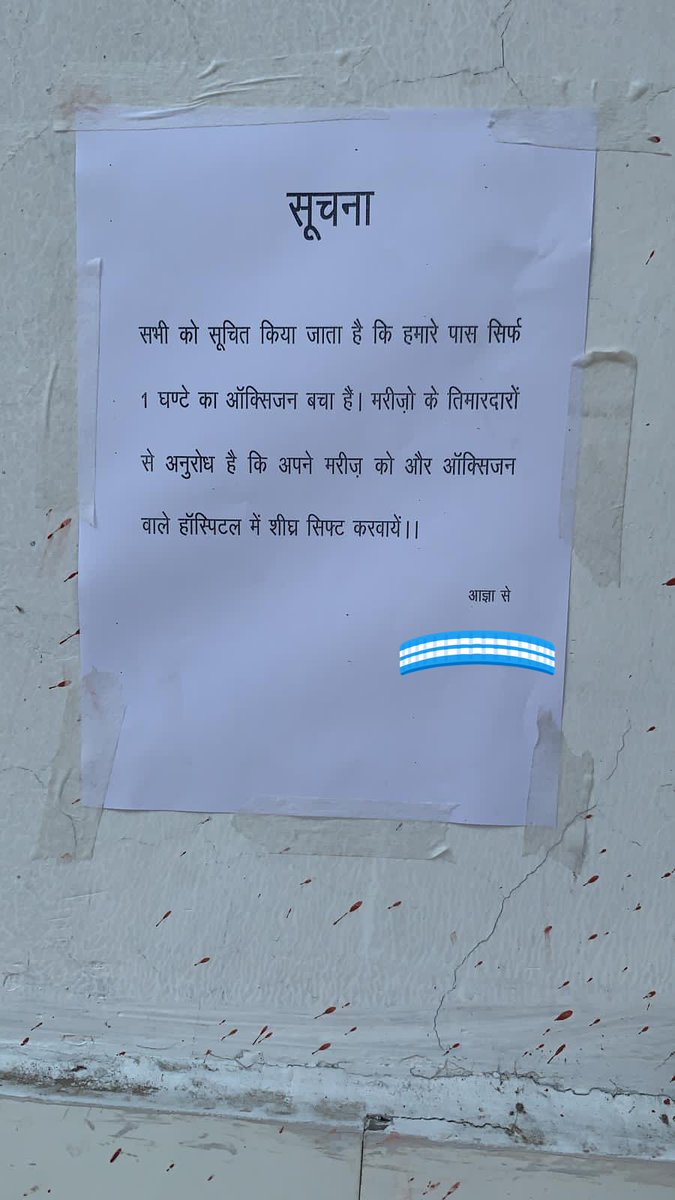 सूचना
सभी को सूचित किया जाता है कि हमारे पास सिर्फ
1 घण्टे का ऑक्सिजन बचा हैं। मरीज़ो के तिमारदारों
से अनुरोध है कि अपने मरीज़ को और ऑक्सिजन
वाले हॉस्पिटल में शीघ्र सिफ्ट करवायें।।
आज्ञा से